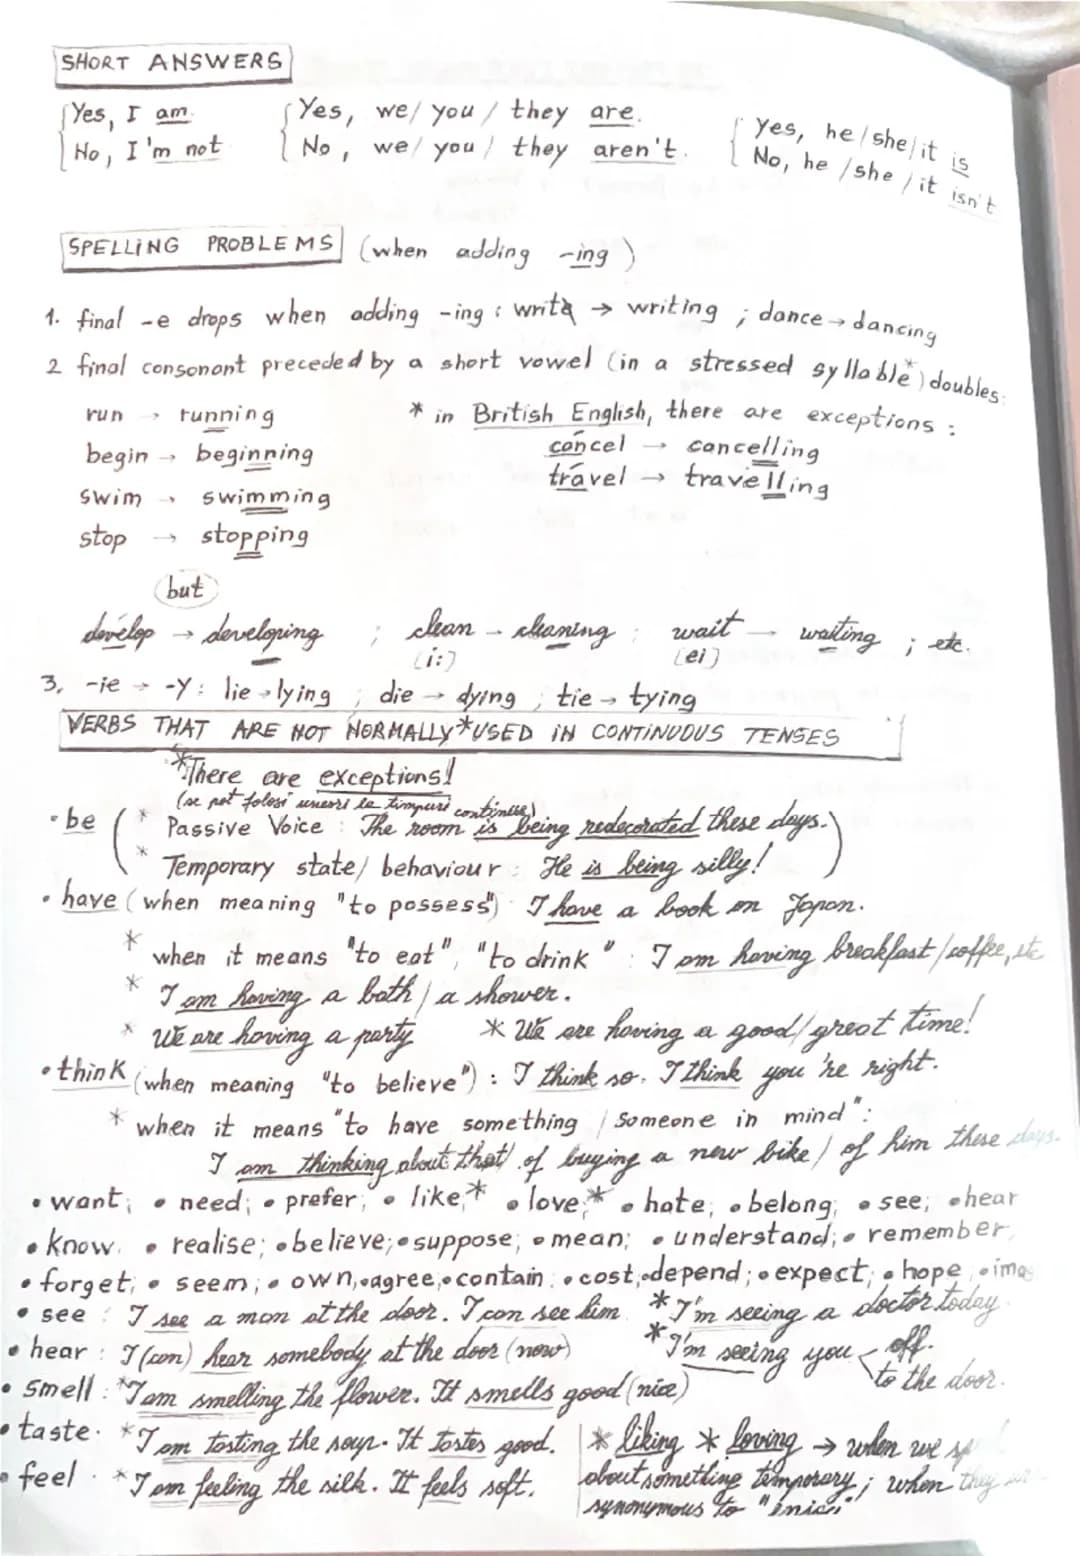 SHORT ANSWERS
Yes, I am.
No, I'm not
Yes, we/ you / they are.
No, we/ you / they aren't.
Yes, he/she/it is
No, he /she / it isn't
SPELLING PROBLEMS (when adding -ing)
1. final -e drops when adding -ing : write → writing ; dance → dancing
2 final consonant preceded by a short vowel (in a stressed syllable*) doubles:
run → running
begin → beginning
swim → swimming
stop → stopping
* in British English, there are exceptions :
cancel → cancelling
travel → travelling
but
develop → developing ; clean → cleaning ; wait → waiting ; etc.
[i:] [ei]
3. -ie → -y : lie → lying ; die → dying ; tie → tying
VERBS THAT ARE NOT NORMALLY* USED IN CONTINUOUS TENSES
*There are exceptions!
(se pot folosi uneori la timpuri continue)
• be ( * Passive Voice : The room is being redecorated these days.
* Temporary state/ behaviour : He is being silly! )
• have (when meaning "to possess") I have a book on Japan.
* when it means "to eat", "to drink" : I am having breakfast/coffee, etc
* I am having a bath / a shower.
* We are having a party * We are having a good/great time!
• think (when meaning "to believe") : I think so. I think you're right.
* when it means "to have something / someone in mind":
I am thinking about that/ of buying a new bike/ of him these days.
• want; • need; • prefer; • like;* • love;* • hate; • belong; • see; • hear
• know. • realise; • believe; • suppose; • mean; • understand; • remember,
• forget; • seem; • own, • agree; • contain; • cost; • depend; • expect; • hope; •
• see : I see a man at the door. I can see him * I'm seeing a doctor today.
* I'm seeing you off.
to the door.
• hear : I (can) hear somebody at the door (now)
• smell : *I am smelling the flower. It smells good (nice)
• taste . *I am tasting the soup. It tastes good.
• feel . *I am feeling the silk. It feels soft.
* liking * loving → when we
about something temporary; when they
synonymous to "